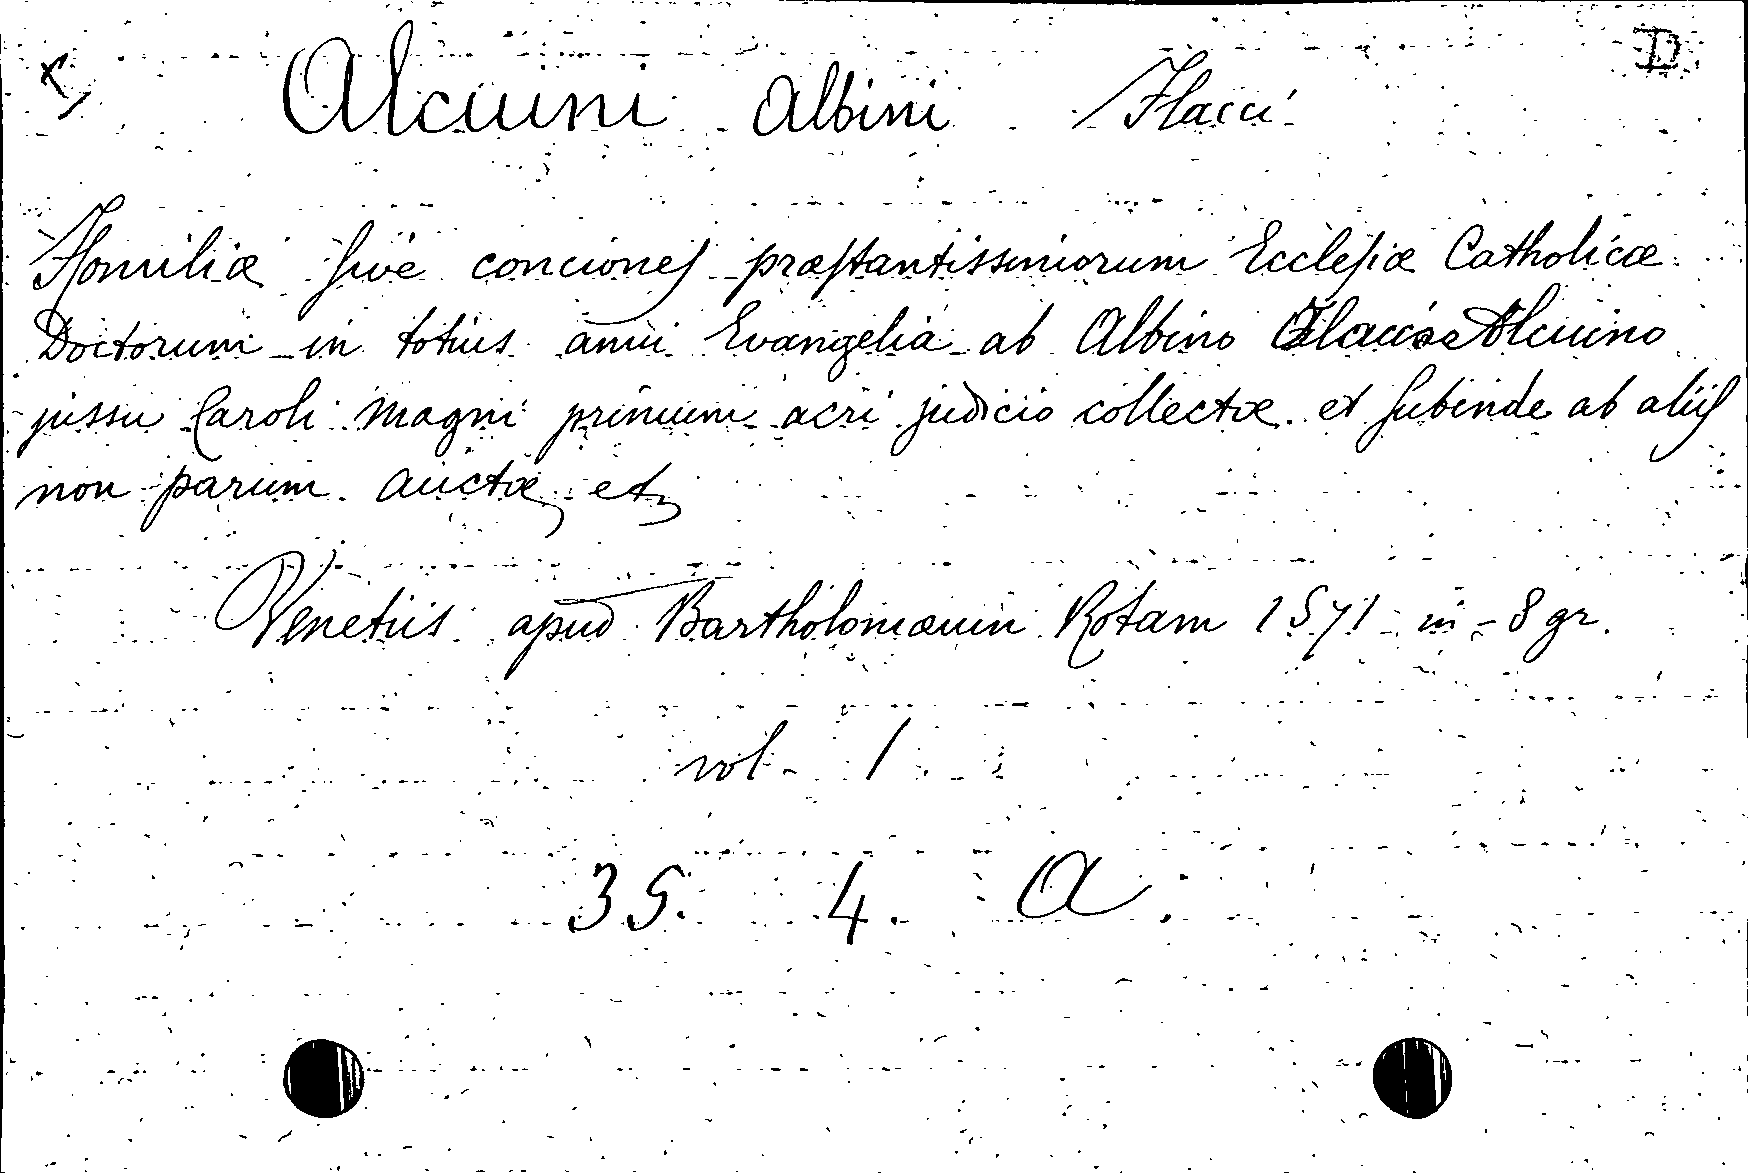 D
Alcuini Albini Flacci
Homiliæ ſive concioneſ præſtantissimorum Eccleſiæ Catholicæ
Doctorum in totius anni Evangelia ab Albino Flacco Alcuino
jussu Caroli Magni primum acri judicio collectæ et ſubinde ab aliiſ
non parum auctæ, et
Venetiis apud Bartholomæum Rotam 1571 in-8 gr.
vol. 1
35. 4. A.